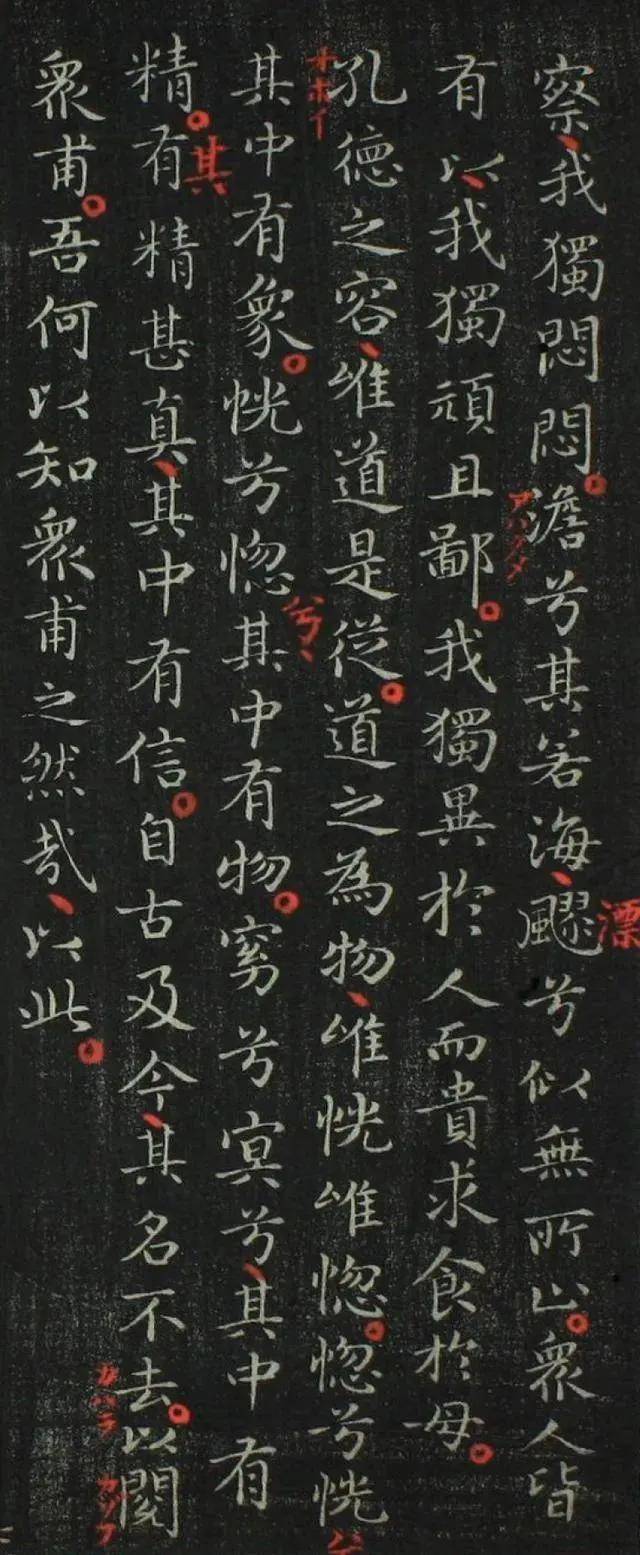 察、我獨悶悶。澹兮其若海、飂兮似無所止。眾人皆
漂
有以、我獨頑且鄙。我獨異於人而貴求食於母。
孔德之容、唯道是從。道之為物、唯恍唯惚。惚兮恍
オホイ
兮、
其中有象。恍兮惚其中有物。窈兮冥兮、其中有
其
精。有精甚真、其中有信。自古及今、其名不去。以閱
眾甫。吾何以知眾甫之然哉、以此。